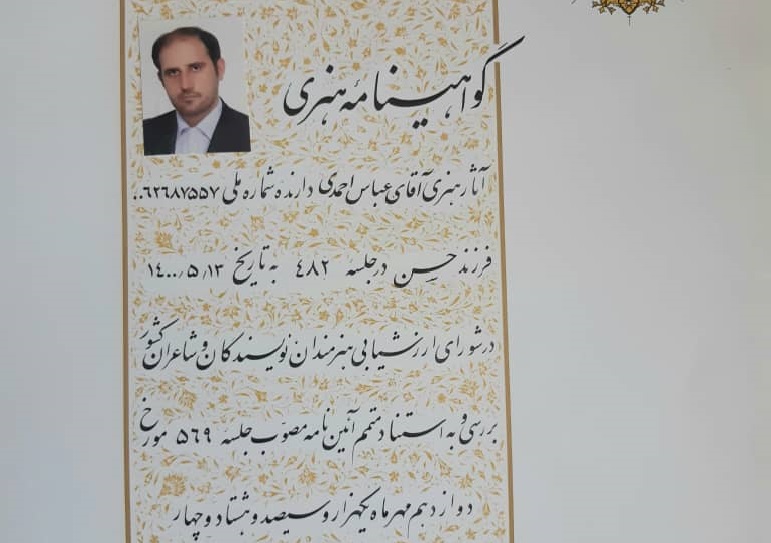 گواهینامه هنری
آثار هنری آقای عباس احمدی دارنده شماره ملی ۰۰۶۲۶۸۷۵۵۷
فرزند حسن در جلسه ۴۸۲ به تاریخ ۱۴۰۰/۵/۱۳
در شورای ارزشیابی هنرمندان نویسندگان و شاعران کشور
بررسی و به استناد متمم آئین نامه مصوب جلسه ۵۶۹ مورخ
دوازدهم مهرماه یکهزار و سیصد و هشتاد و چهار